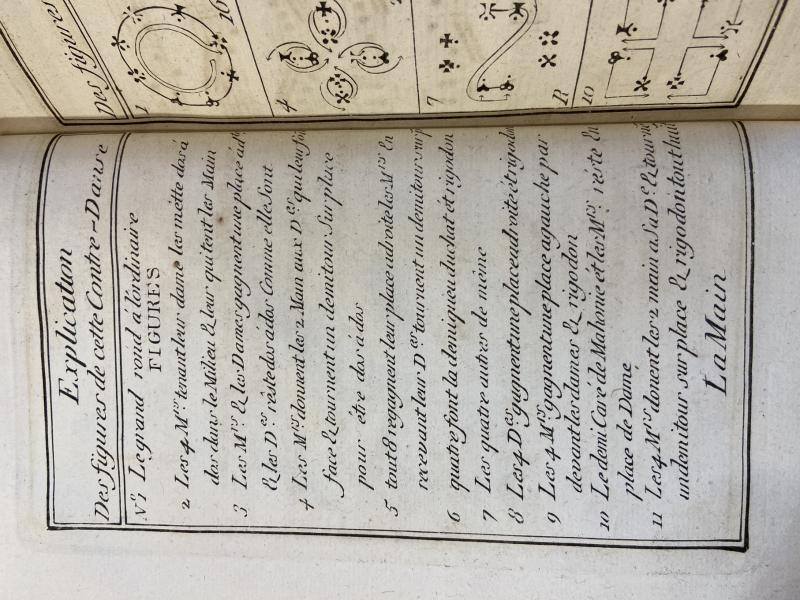 Des figures
1
16
4
7
R
10
Explication
Des figures de cette Contre-Danse
Nº 1 Le grand rond à l'ordinaire
FIGURES
2 Les 4 Mrs tenant leur dame les mette dos à
dos dans le Milieu & leur quitent les Main
3 Les Mrs & les Dames gagnent une place à
& les Des réste dos à dos Comme elle sont
4 Les Mrs donnent les 2 Main aux Des qui leur
face & tournent un demi tour Sur place
pour étre dos à dos
5 tout 8 regagnent leur place a droite les Mrs En
recevant leur Des tournent un demi tour sur
6 quatre font la demi queu du chat et rigodon
7 Les quatre autres de même
8 Les 4 Des gagnent une place a droite et rigodon
9 Les 4 Mrs gagnent une place a gauche par
devant les dames & rigodon
10 Le demi Caré de Mahonie et les Mrs réste En
place de Dame
11 Les 4 Mrs donent les 2 main a Sa De & tourne
un demi tour sur place & rigodon tout huit
La Main